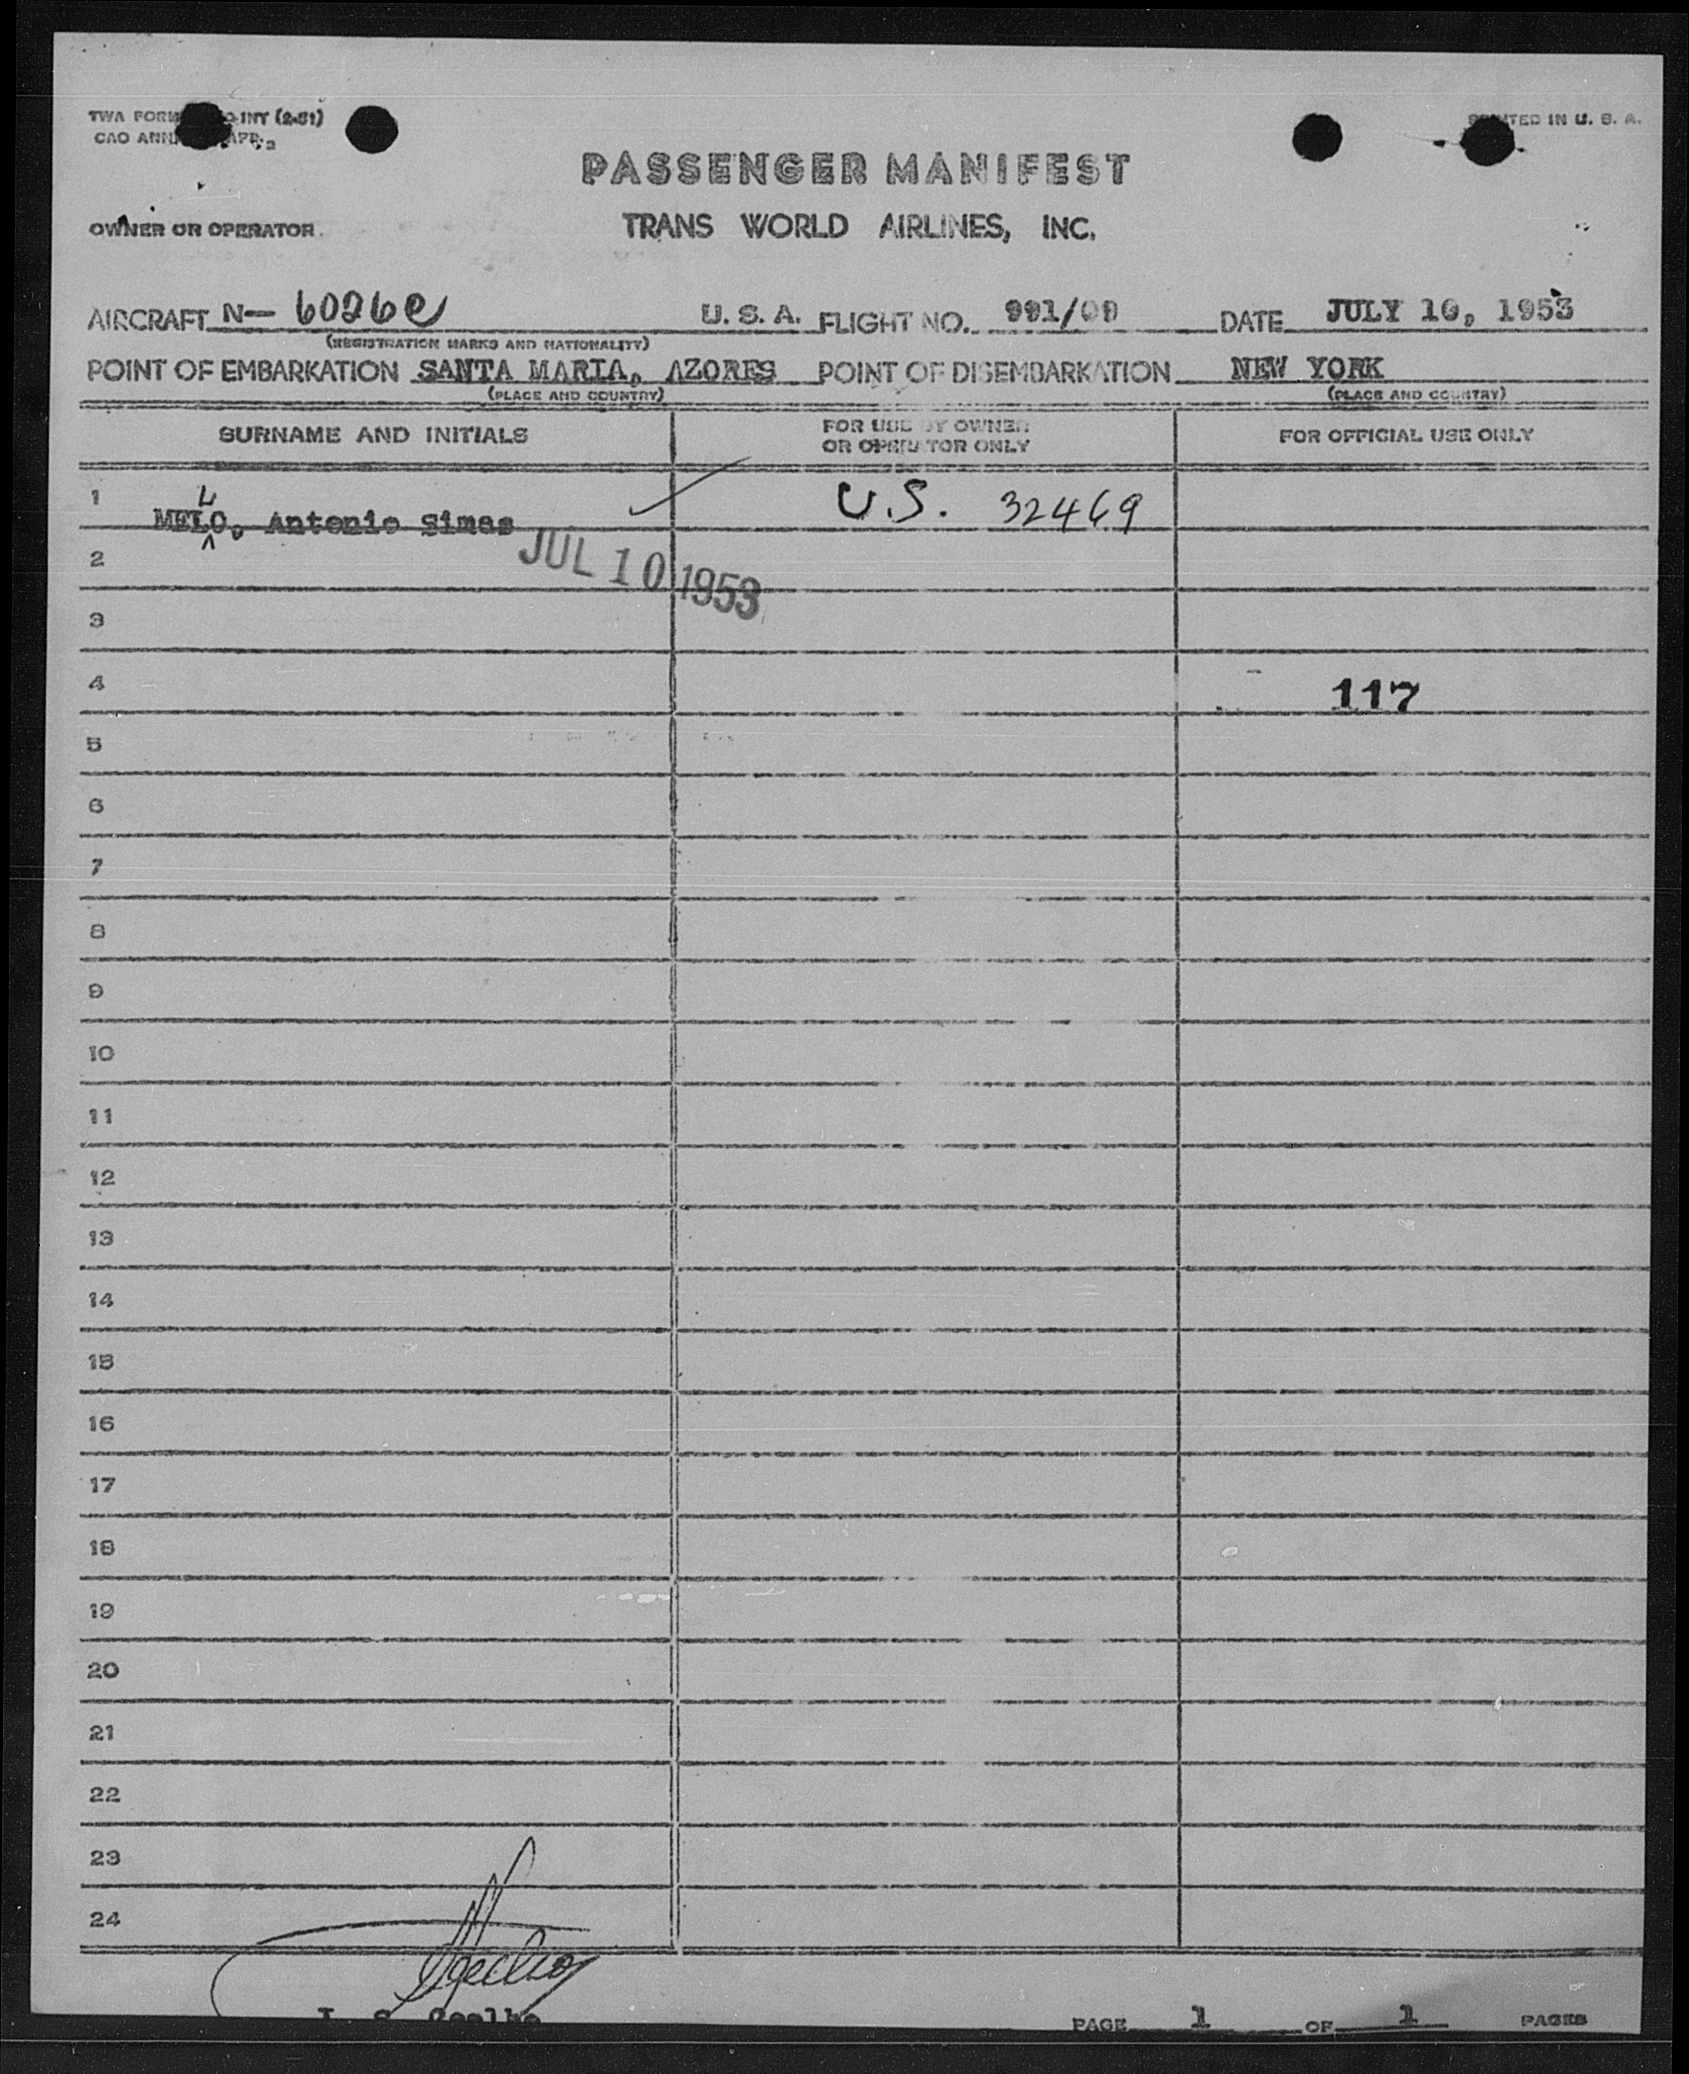 TWA FORM O-INT (2-51)
PRINTED IN U. S. A.
CAO ANN APP. 2
PASSENGER MANIFEST
OWNER OR OPERATOR
TRANS WORLD AIRLINES, INC.
AIRCRAFT N- 6026C U. S. A. FLIGHT NO. 991/09 DATE JULY 10, 1953
(REGISTRATION MARKS AND NATIONALITY)
POINT OF EMBARKATION SANTA MARIA, AZORES POINT OF DISEMBARKATION NEW YORK
(PLACE AND COUNTRY) (PLACE AND COUNTRY)
SURNAME AND INITIALS FOR USE BY OWNER OR OPERATOR ONLY FOR OFFICIAL USE ONLY
L
1 MELO, Antonio Simas U.S. 32469
2 JUL 10 1953
3
4 117
5
6
7
8
9
10
11
12
13
14
15
16
17
18
19
20
21
22
23
24
Coelho
PAGE 1 OF 1 PAGES